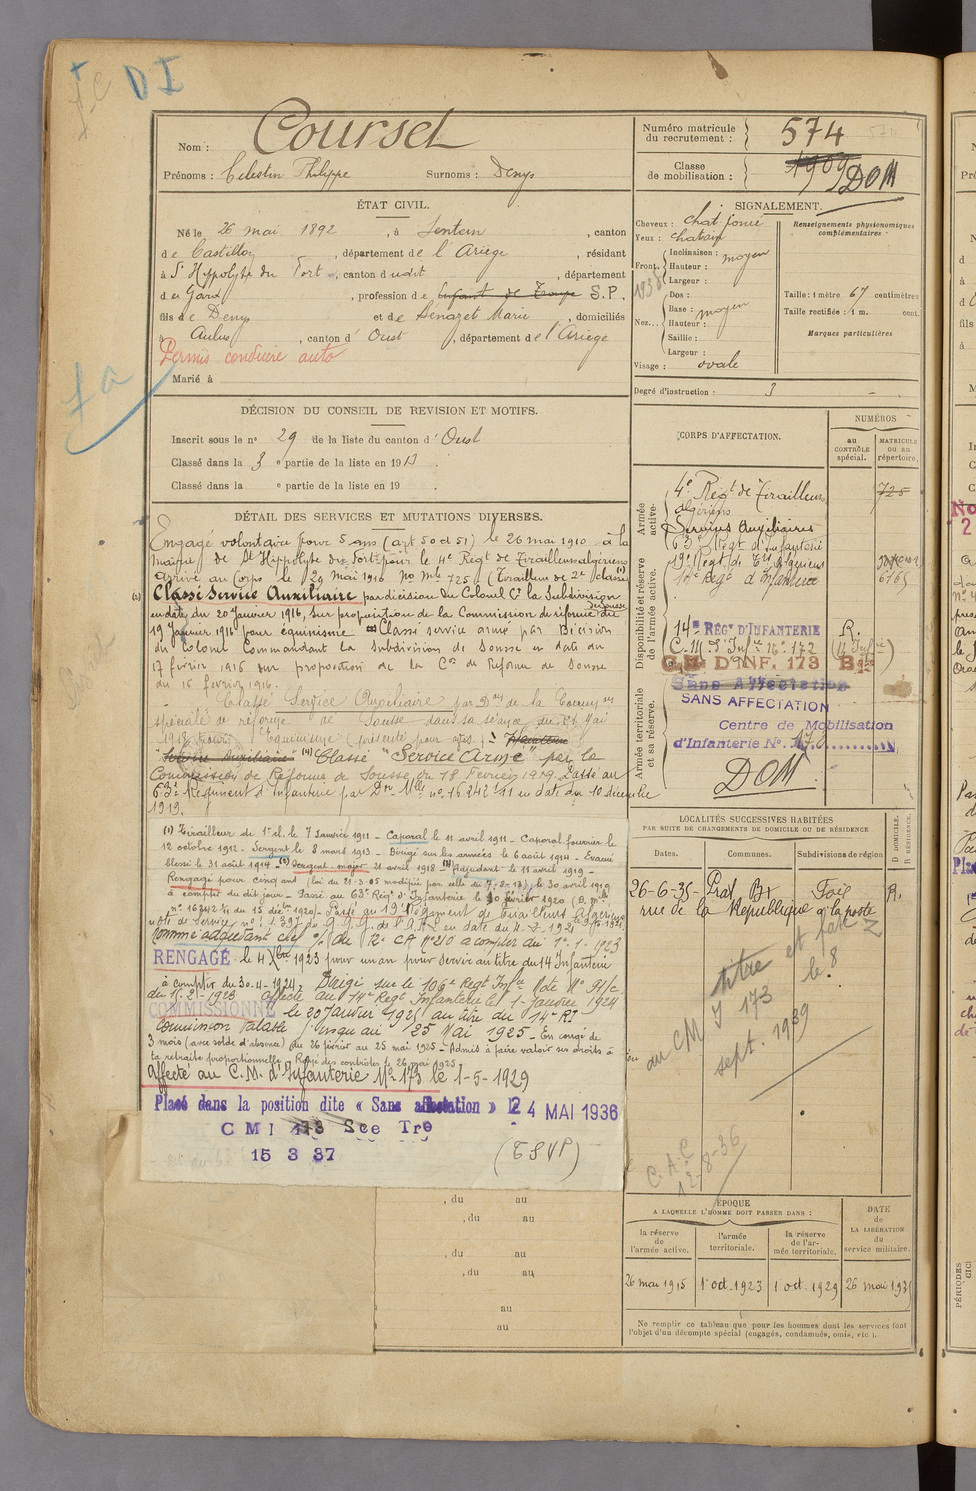 DI
Nom : Coursel
Prénoms : Célestin Philippe Surnoms : Denys
Numéro matricule du recrutement : 574
Classe de mobilisation : 1909 DOM
ÉTAT CIVIL.
Né le 26 mai 1892, à Sentein, canton
de Castillon, département de l'Ariège, résidant
à St Hippolyte du Fort, canton dudit, département
du Gard, profession de Enfant de Troupe S.P.
fils de Denys et de Sénazet Marie, domiciliés
à Aulus, canton d'Oust, département de l'Ariège
Permis conduire auto
Marié à
SIGNALEMENT.
Cheveux : chat. foncé
Yeux : chatain
Front. Inclinaison : moyen
Hauteur :
Largeur :
Nez... Dos :
Base : moyen
Hauteur :
Saillie :
Largeur :
Visage : ovale
Renseignements physionomiques complémentaires.
Taille : 1 mètre 67 centimètres
Taille rectifiée : 1 m. cent.
Marques particulières
Degré d'instruction : 3
DÉCISION DU CONSEIL DE REVISION ET MOTIFS.
Inscrit sous le n° 29 de la liste du canton d'Oust
Classé dans la 3 e partie de la liste en 1913.
Classé dans la e partie de la liste en 19 .
DÉTAIL DES SERVICES ET MUTATIONS DIVERSES.
Engagé volontaire pour 5 ans (art 50 et 51) le 26 mai 1910 à la
mairie de St Hippolyte du Fort pour le 4e Régt de Tirailleurs algériens
Arrivé au Corps le 29 mai 1910 No Mle 725 (Tirailleur de 2e classe) (1)
Classé Service Auxiliaire par décision du Colonel Ct la Subdivision de Sousse
en date du 20 Janvier 1916, sur proposition de la Commission de réforme du
19 Janvier 1916 pour équinisme Classé service armé par Décision
du Colonel Commandant la Subdivision de Sousse en date du
17 février 1916 sur proposition de la Con de Réforme de Sousse
du 16 février 1916.
Classé Service Auxiliaire par Don de la Commission
spéciale de réforme de Sousse dans sa séance du
1918 pour Equinisme
"Service Auxiliaire" Classé "Service Armé" par la
Commission de Réforme de Sousse du 18 Février 1919. Passé au
63e Régiment d'Infanterie par Don Mlle no 16242 1/11 en date du 10 décembre
1919.
(1) Tirailleur de 1e cl. le 7 Janvier 1911 - Caporal le 11 avril 1911 - Caporal fourrier le
12 octobre 1912 - Sergent le 8 mars 1913 - Dirigé sur les armées le 6 août 1914 - Evacué
blessé le 31 août 1914 - Sergent-major 21 avril 1918 - Adjudant le 11 avril 1919 -
Rengagé pour cinq ans (loi du 21-3-05 modifiée par celle du 7-8-13), le 30 avril 1919
à compter du dit jour - Passé au 63e Régt d'Infanterie le 10 février 1920
n° 16242 1/11 du 15 décbre 1920 - Passé au 19e Régiment de tirailleurs Algériens
Nommé adjudant chef par du 2e CA n° 210 à compter du 1er-1-1923
RENGAGÉ le 4 Xbre 1923 pour un an pour servir au titre du 14 Infanterie
à compter du 30-4-1924. Dirigé sur le 106e Régt Infie
affecté au 14e Regt Infanterie le 1-Janvier 1924
COMMISSIONNÉ le 20 Janvier 1925 au titre du 14e RI
Commission valable jusqu'au 25 Mai 1925 - En congé de
3 mois (avec solde d'absence) du 26 février au 25 mai 1925 - Admis à faire valoir ses droits à
la retraite proportionnelle Rayé des contrôles le 26 mai 1925
Affecté au C.M. d'Infanterie No 173 le 1-5-1929
Placé dans la position dite « Sans affectation » le 24 MAI 1936
CMI 173 See Tre
15 3 37
(TSVP)
CORPS D'AFFECTATION.
NUMÉROS
au CONTRÔLE spécial.
MATRICULE OU AU répertoire.
Armée active.
4e Régt de Tirailleurs algériens 725
Services Auxiliaires
63e Régt d'Infanterie
19e Regt de Tirs Algériens
Disponibilité et réserve de l'armée active.
14e RÉGT D'INFANTERIE R.
C.M. d'Infie No 172
C.M. D'INF. 173 B
Sans Affectation
Armée territoriale et sa réserve.
SANS AFFECTATION
Centre de Mobilisation
d'Infanterie N° 173
DOM
LOCALITÉS SUCCESSIVES HABITÉES
PAR SUITE DE CHANGEMENTS DE DOMICILE OU DE RÉSIDENCE
Dates. Communes. Subdivisions de région D DOMICILE. R RÉSIDENCE.
26-6-35- Prat Bx Foix R.
rue de la République à la poste
titre et fait le 8
au CM I 173
sept. 1939
C.A.C
12-8-36
, du au
, du au
, du au
, du au
au
au
ÉPOQUE
A LAQUELLE L'HOMME DOIT PASSER DANS :
la réserve de l'armée active.
l'armée territoriale.
la réserve de l'armée territoriale.
DATE de LA LIBÉRATION du service militaire.
26 mai 1915 1er oct. 1923 1 oct. 1929 26 mai 193
Ne remplir ce tableau que pour les hommes dont les services font
l'objet d'un décompte spécial (engagés, condamnés, omis, etc.).